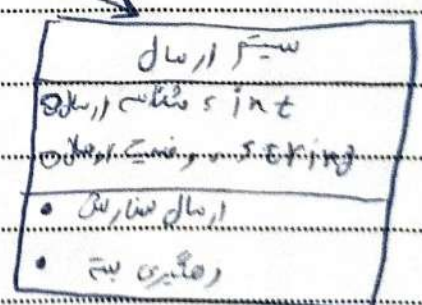 سیستم ارسال
شناسه ارسال : int
وضعیت ارسال : string
ارسال سفارش
رهگیری بسته